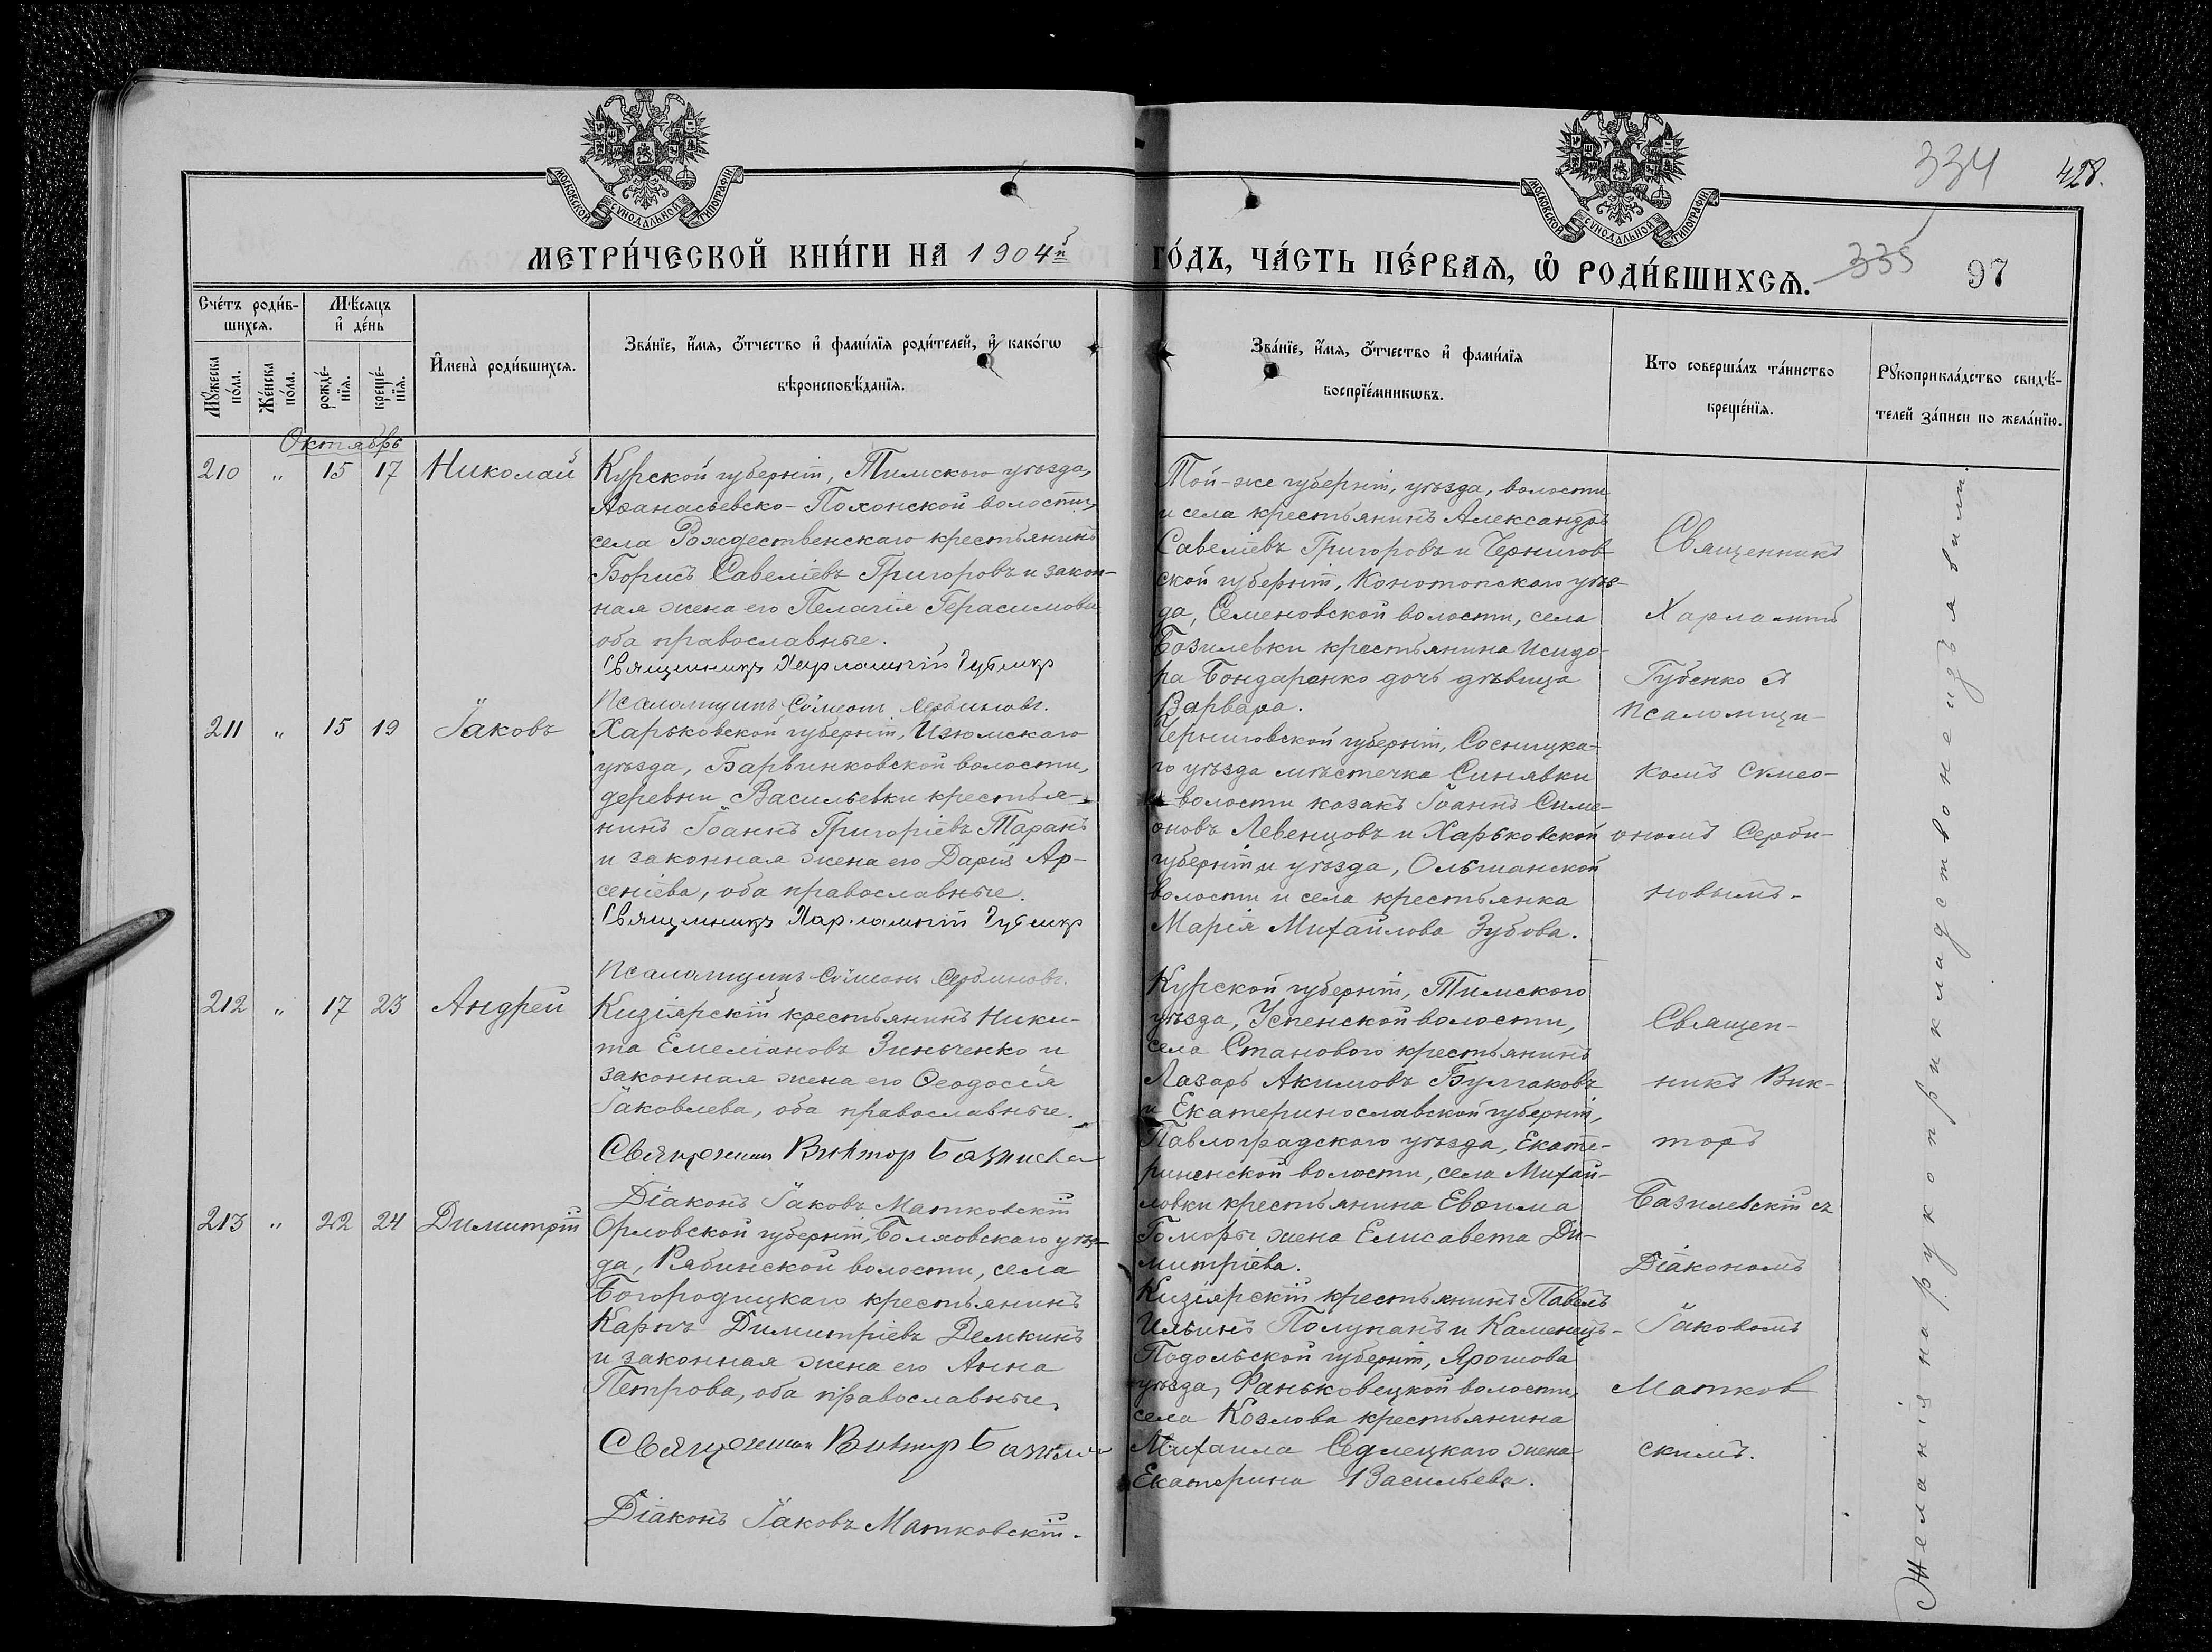 МОСКОВСКОЙ СѴНОДАЛЬНОЙ ТИПОГРАФІИ
МОСКОВСКОЙ СѴНОДАЛЬНОЙ ТИПОГРАФІИ
334
428.
МЕТРИ́ЧЕСКОЙ КНИ́ГИ НА 1904й ГО́ДЪ, ЧА́СТЬ ПЕ́РВАѦ, Ѡ҆ РОДИ́ВШИХСѦ.
335
97
Сче́тъ роди́в-
шихсѧ.
Мꙋ́жеска по́ла.
Же́нска по́ла.
Мѣ́сѧцъ
и҆ де́нь
рожде́-
нїѧ.
креще́-
нїѧ.
И҆мена̀ роди́вшихсѧ.
Зва́нїе, и҆́мѧ, ѻ҆́тчество и҆ фами́лїѧ роди́телей, и҆ како́гѡ
вѣроисповѣ́данїѧ.
Зва́нїе, и҆́мѧ, ѻ҆́тчество и҆ фами́лїѧ
воспрїе́мникѡвъ.
Кто соверша́лъ та́инство
креще́нїѧ.
Рꙋкоприкла́дство свидѣ́-
телей за́писи по жела́нїю.
Октябрь
210 " 15 17 Николай
Курской губерніи, Тимскаго уѣзда,
Аѳанасьевско-Похонской волости,
села Рождественскаго крестьянинъ
Борисъ Савеліевъ Григоровъ и закон-
ная жена его Пелагія Герасимова
оба православные.
Священникъ Харлампій Губенко
Псаломщикъ Симеонъ Сербиновъ.
Той-же губерніи, уѣзда, волости
и села крестьянинъ Александръ
Савеліевъ Григоровъ и Чернигов
ской губерніи, Конотопскаго уѣз-
да, Семеновской волости, села
Базилевки крестьянина Исидо-
ра Бондаренко дочь дѣвица
Варвара.
Священникъ
Харлампій
Губенко съ
псаломщи-
комъ Симео-
ономъ Серби-
новымъ.
211 " 15 19 Іаковъ
Харьковской губерніи, Изюмскаго
уѣзда, Барвинковской волости,
деревни Васильевки крестья-
нинъ Іоаннъ Григоріевъ Таранъ
и законная жена его Дарія Ар-
сеніева, оба православные.
Священникъ Харлампій Губенко
Псаломщикъ Симеонъ Сербиновъ.
Черниговской губерніи, Сосницка-
го уѣзда мѣстечка Синявки
волости козакъ Іоаннъ Симе-
оновъ Левенцовъ и Харьковской
губерніи и уѣзда, Ольшанской
волости и села крестьянка
Марія Михайлова Зубова.
212 " 17 23 Андрей
Кизіярскій крестьянинъ Ники-
та Емеліановъ Зинченко и
законная жена его Ѳеодосія
Іаковлева, оба православные.
Священникъ Викторъ Базилевскій
Діаконъ Іаковъ Матковскій
Курской губерніи, Тимского
уѣзда, Успенской волости,
села Станового крестьянинъ
Лазарь Акимовъ Булгаковъ
и Екатеринославской губерніи,
Павлоградского уѣзда, Екате-
рининской волости, села Михай-
ловки крестьянина Евѳима
Гоморы жена Елисавета Ди-
митріева.
Священ-
никъ Вик-
торъ
Базилевскій съ
Діакономъ
Іаковомъ
Матков
скимъ.
213 " 22 24 Димитрій
Орловской губерніи, Болховскаго уѣз-
да, Рябинской волости, села
Богородицкаго крестьянинъ
Карпъ Димитріевъ Демкинъ
и законная жена его Анна
Петрова, оба православные.
Священникъ Викторъ Базилев
Діаконъ Іаковъ Матковскій.
Кизіярскій крестьянинъ Павелъ
Ильинъ Полупанъ и Каменецъ-
Подольской губерніи, Ярошова
уѣзда, Фаньковецкой волости
села Козлова крестьянина
Михаила Седлецкаго жена
Екатерина Васильева.
Желанія на рукоприкладство не изъявили.